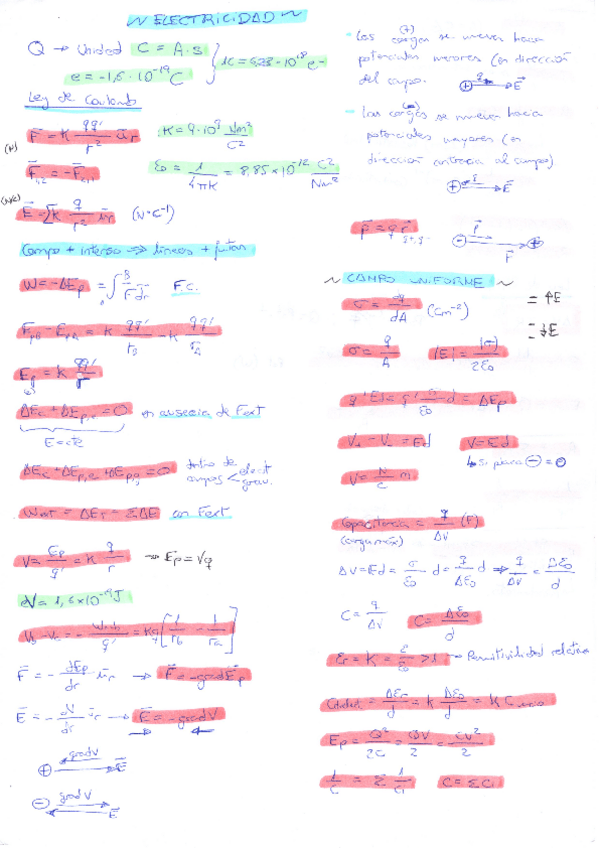 ~ ELECTRICIDAD ~
Q → Unidad C = A.s } 1C = 6,23·10¹⁸ e⁻
e = -1,6·10⁻¹⁹ C
Ley de Coulomb
(N) F = K qq'/r² ûr K = 9·10⁹ Nm²/C²
F₁,₂ = -F₂,₁ ε₀ = 1/4πK = 8,85×10⁻¹² C²/Nm²
(N/C) E = ΣK q/r² ûr (N·C⁻¹)
Campo + intenso ⇒ líneas + juntas
W = -ΔEp = ∫ F dr F.C.
EpB - EpA = K qq'/rB - K qq'/rA
Ep = K qq'/r
ΔEc + ΔEp,e = 0 en ausencia de Fext
E = cte
ΔEc + ΔEp,e + ΔEp,g = 0 dentro de campos < elect grav.
Wext = ΔET = ΣΔE con Fext
V = Ep/q' = K q/r ⇒ Ep = Vq
eV = 1,6×10⁻¹⁹ J
= Kq [1/rb - 1/ra]
F = - dEp/dr ûr → F = -grad Ep
→ E = -grad V
gradV
⊕ E
⊖ gradV
E
- Las cargas (+) se mueven hacia
potenciales menores (en dirección
del campo.
⊕ E
- Las cargas (-) se mueven hacia
potenciales mayores (en
dirección contraria al campo)
⊕ E
p = q r
~ CAMPO UNIFORME ~
σ = dq/dA (Cm⁻²)
= ↑E
= ↓E
σ = q/A |E| = |σ|/2ε₀
q'Ed = q' σ/ε₀ d = ΔEp
V₊ - V₋ = Ed V = Ed
↳ Si placa ⊖ = 0
V = N/C m
Capacitancia = q/ΔV (F)
ΔV = Ed = σ/ε₀ d = q/Aε₀ d ⇒ q/ΔV = Aε₀/d
C = q/ΔV C = Aε₀/d
εr = K = ε/ε₀ > 1 → Permitividad relativa
Ep = Q²/2C = QV/2 = CV²/2
1/C = Σ 1/Ci C = ΣCi